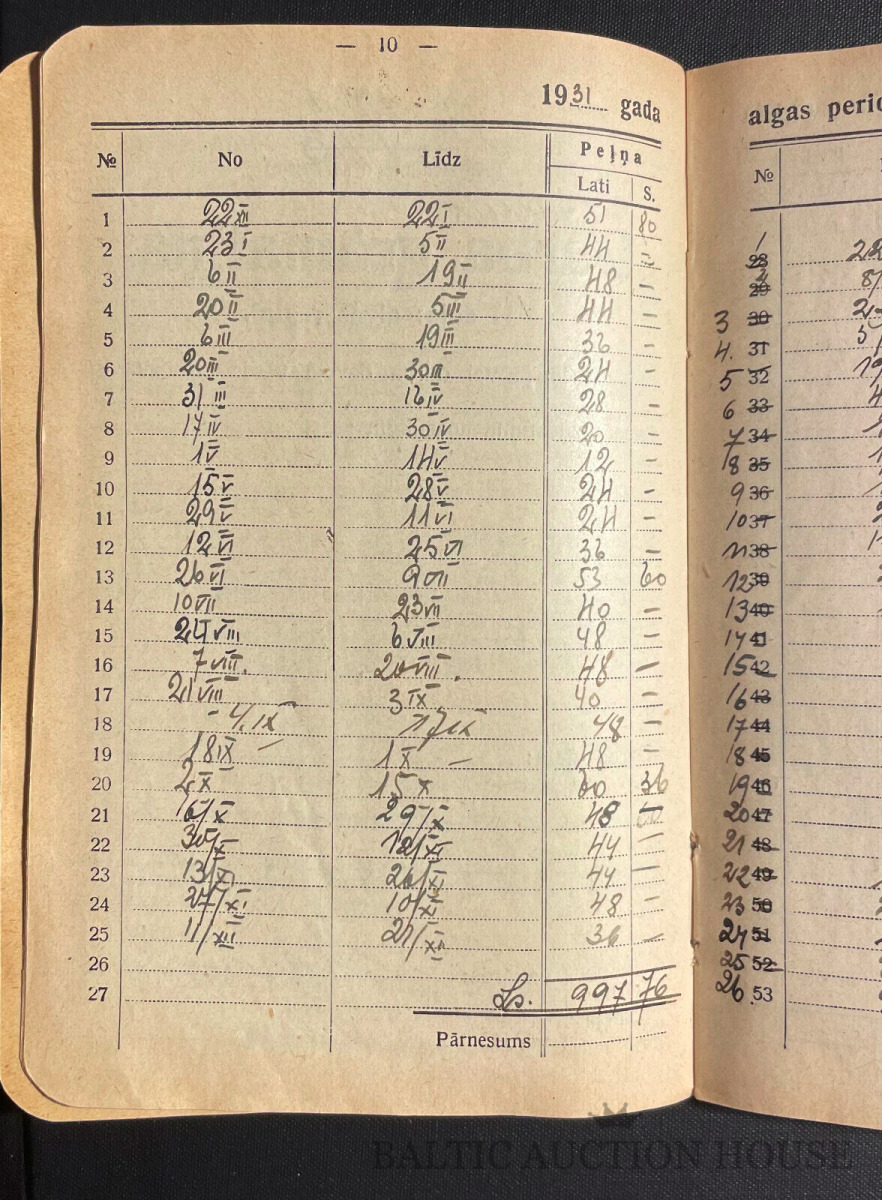 — 10 —
1931 gada
№ No Līdz Peļņa
Lati S.
1 22 XII 22 I 51 80
2 23 I 5 II 44 –
3 6 II 19 II 48 –
4 20 II 5 III 44 –
5 6 III 19 III 36 –
6 20 III 30 III 24 –
7 31 III 16 IV 28 –
8 17 IV 30 IV 20 –
9 1 V 14 V 12 –
10 15 V 28 V 24 –
11 29 V 11 VI 24 –
12 12 VI 25 VI 36 –
13 26 VI 9 VII 53 60
14 10 VII 23 VII 40 –
15 24 VIII 6 VIII 48 –
16 7 VIII. 20 VIII. 48 –
17 21 VIII 3 IX 40 –
18 - 4/IX 17/IX 48 –
19 18 IX – 1 X – 48 –
20 2 X 15 X 60 36
21 16/X 29/X 48 –
22 30/X 12/XI 44 –
23 13/XI 26/XI 44 –
24 27/XI 10/XI 48 –
25 11/XII 21/XII 36 –
26
27 Ls. 997 76
Pārnesums
algas perio
№
1 28
2 29
3 30
4. 31
5 32
6 33
7 34
8 35
9 36
10 37
11 38
12 39
13 40
14 41
15 42
16 43
17 44
18 45
19 46
20 47
21 48
22 49
23 50
24 51
25 52
26 53
BALTIC AUCTION HOUSE